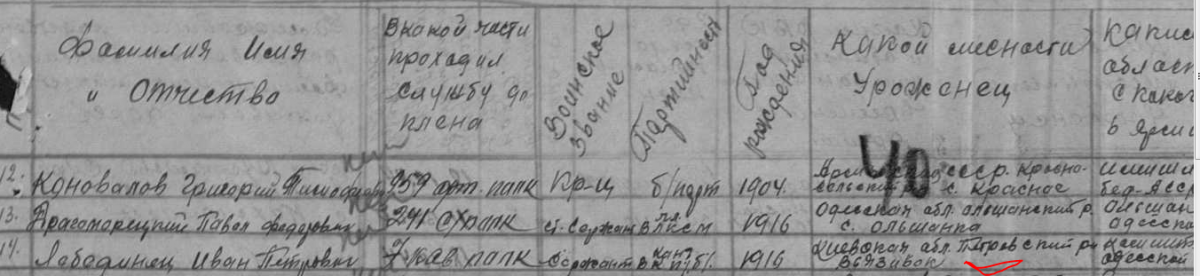 Фамилия Имя
и Отчество
В какой части
проходил
службу до
плена
Воинское
звание
Партийность
Год
рождения
Какой месности
Уроженец
облас
с како
в Арми
40
12. Коновалов Григорий 959 арт. полк кр-ц б/парт 1904. ССР. Красно-
с. Красное
13. Павел Федорович 241 полк ст. Сержан ВЛКСМ 1916 Одесская обл. ольшанский р. Ольшан
с. Ольшанка Одесско
14. Лебединец Иван Петрович 7 кав полк Сержант 1916 Киевская обл. Петровский рн
Вязивок Одесской